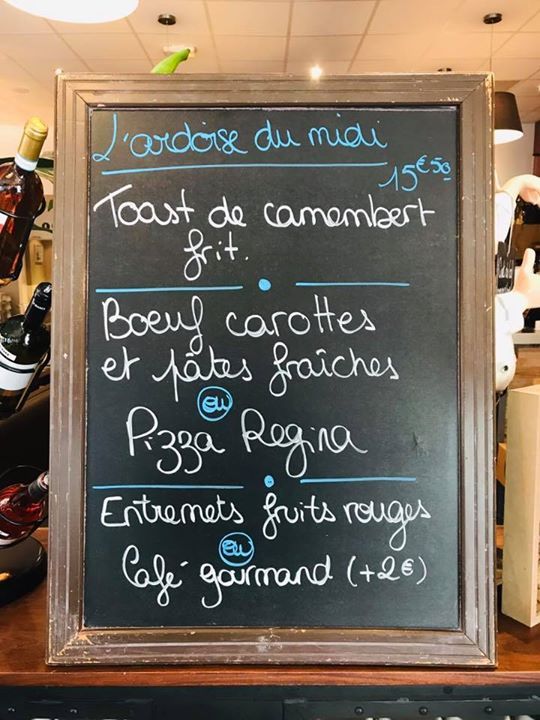 L'ardoise du midi
15€50
Toast de camembert
frit.
Boeuf carottes
et pâtes fraîches
ou
Pizza Regina
Entremets fruits rouges
ou
Café gourmand (+2€)